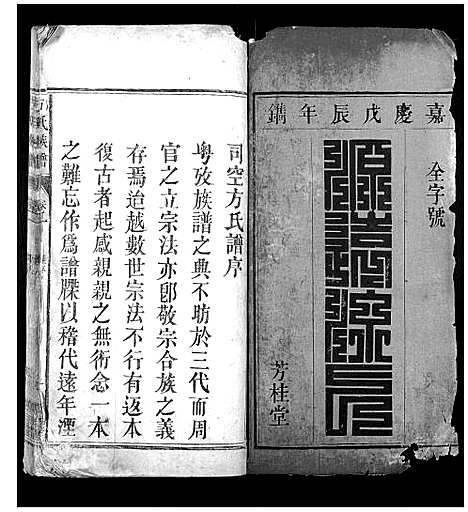 嘉慶戊辰年鐫
全字號
芳桂堂
司空方氏譜序
粵攷族譜之典不昉於三代而周
官之立宗法亦卽敬宗合族之義
存焉迨越數世宗法不行有返本
復古者起感親親之無術念一本
之難忘作爲譜牒以稽代遠年湮
方氏族譜